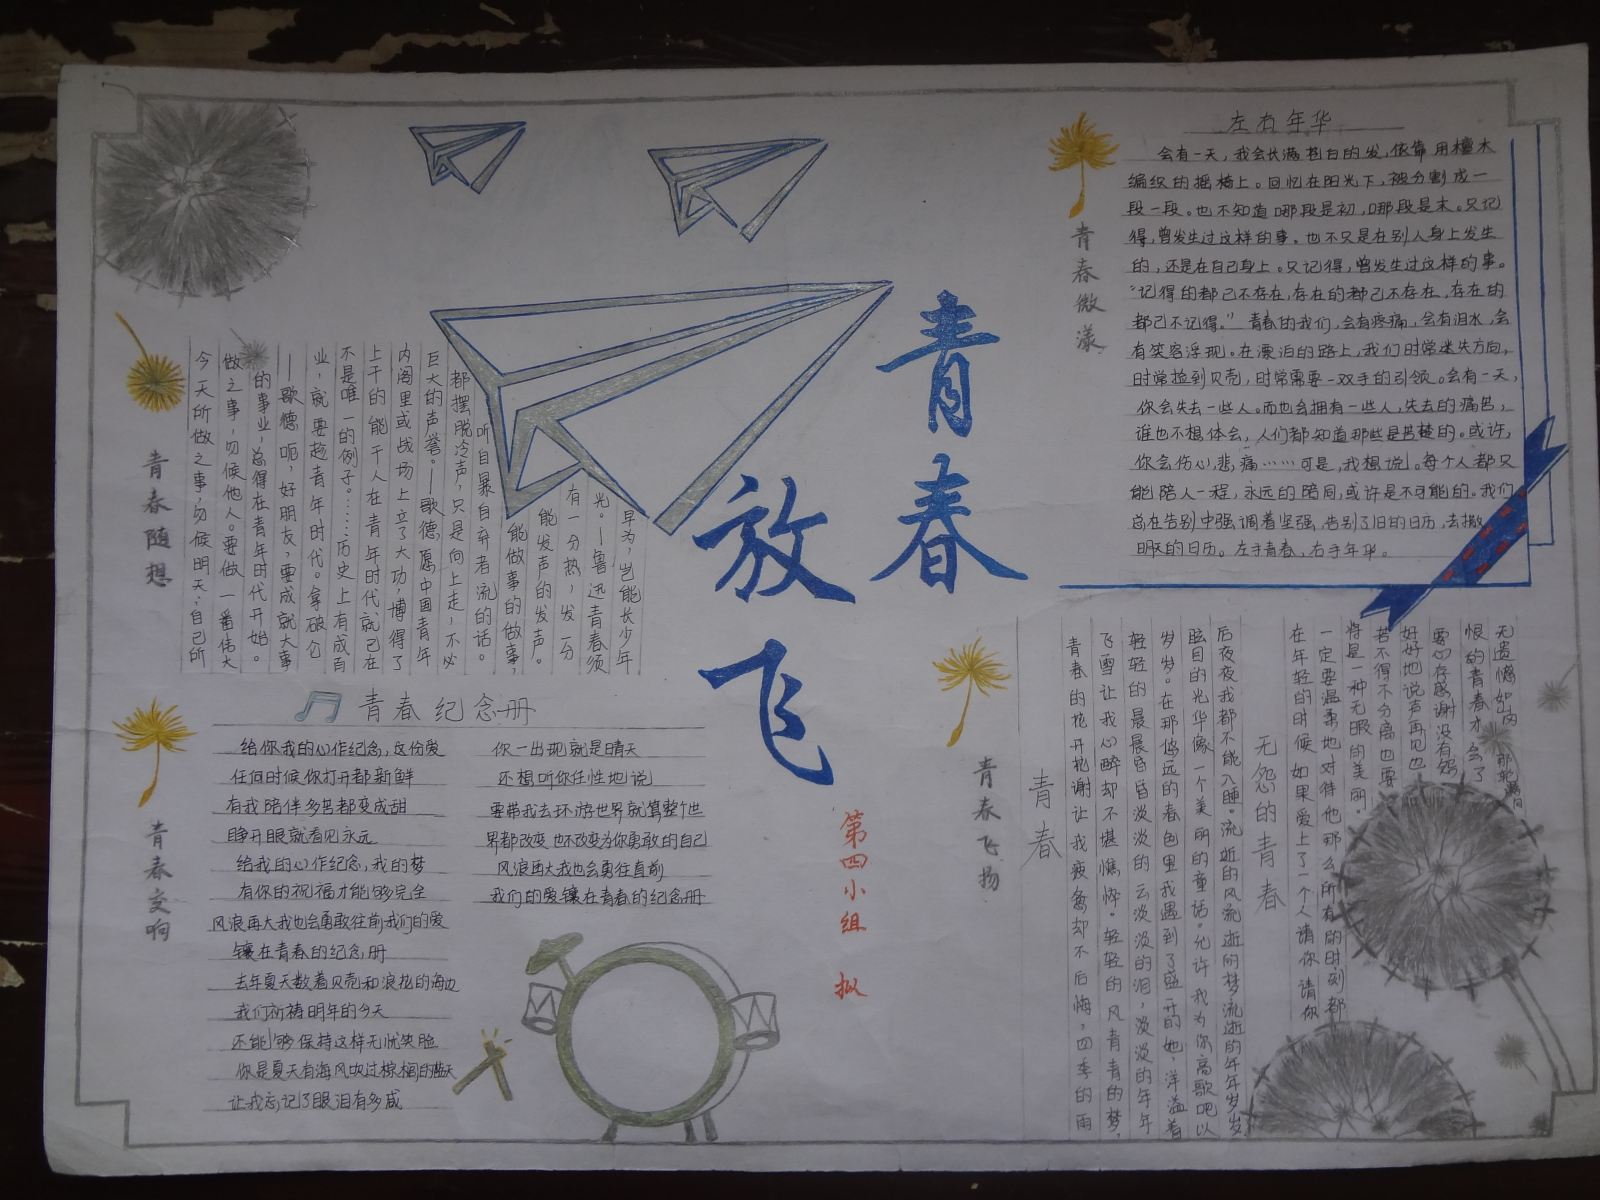 青春
放飞
第四小组 拟
青春随想
今天所做之事,勿候明天;自己所
做之事,勿候他人。要做一番伟大
的事业,总得在青年时代开始。
—歌德 呃,好朋友,要成就大事
业,就要趁青年时代。拿破仑
不是唯一的例子……历史上有成百
上千的能干人在青年时代就已在
内阁里或战场上立了大功,博得了
巨大的声誉。—歌德 愿中国青年
都摆脱冷声,只是向上走,不必
听自暴自弃者流的话。
能做事的做事,
能发声的发声。
有一分热,发一分
光。—鲁迅 青春须
早为,岂能长少年
青春微漾
左右年华
会有一天,我会长满苍白的发,依靠用檀木
编织的摇椅上。回忆在阳光下,被分割成一
段一段。也不知道哪段是初,哪段是末。只记
得,曾发生过这样的事。也不只是在别人身上发生
的,还是在自己身上。只记得,曾发生过这样的事。
“记得的都已不存在,存在的都已不存在,存在的
都已不记得。”青春的我们,会有疼痛,会有泪水,会
有笑容浮现。在漂泊的路上,我们时常迷失方向,
时常捡到贝壳,时常需要一双手的引领。会有一天,
你会失去一些人。而也会拥有一些人,失去的痛苦,
谁也不想体会,人们都知道那些是苦楚的。或许,
你会伤心,悲痛……可是,我想说。每个人都只
能陪人一程,永远的陪同,或许是不可能的。我们
总在告别中强调着坚强,告别了旧的日历,去撒
明天的日历。左手青春,右手年华。
青春交响
青春纪念册
给你我的心作纪念,这份爱
任何时候你打开都新鲜
有我陪伴多苦都变成甜
睁开眼就看见永远
给我的心作纪念,我的梦
有你的祝福才能够完全
风浪再大我也会勇敢往前我们的爱
镶在青春的纪念册
去年夏天数着贝壳和浪花的海边
我们祈祷明年的今天
还能够保持这样无忧笑脸
你是夏天有海风吹过棕榈的蓝天
让我忘记了眼泪有多咸
你一出现就是晴天
还想听你任性地说
要带我去环游世界就算整个世
界都改变也不改变为你勇敢的自己
风浪再大我也会勇往直前
我们的爱镶在青春的纪念册
青春飞扬
青春
青春的花开花谢让我疲惫却不后悔,四季的雨
飞雪让我心醉却不堪憔悴。轻轻的风青青的梦,
轻轻的晨晨昏昏淡淡的云淡淡的泪,淡淡的年年
岁岁。在那悠远的春色里我遇到了盛开的她,洋溢着
眩目的光华像一个美丽的童话。允许我为你高歌吧以
后夜夜我都不能入睡。流逝的风流逝的梦流逝的年年岁岁
无怨的青春
在年轻的时候如果爱上了一个人请你请你
一定要温柔地对待他那么所有的时刻都
将是一种无暇的美丽。
若不得不分离也要
好好地说声再见也
要心存感谢没有怨
恨的青春才会了
无遗憾如